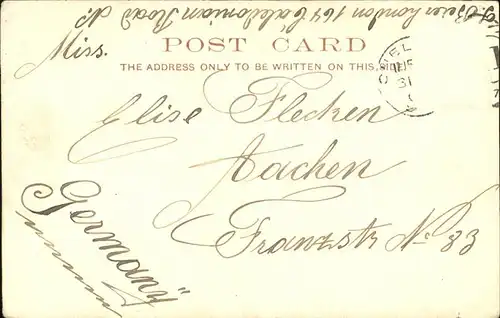 Beier London 164 Caledonian Road N.
POST CARD
THE ADDRESS ONLY TO BE WRITTEN ON THIS SIDE
Miss.
Elise Flecken
Aachen
Franzstr No 83
Germany
31